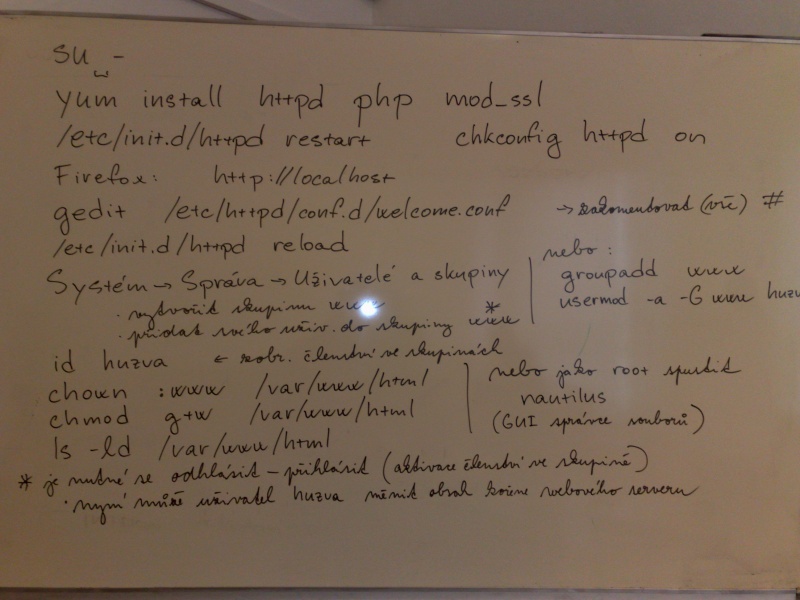 su -
yum install httpd php mod_ssl
/etc/init.d/httpd restart chkconfig httpd on
Firefox: http://localhost
gedit /etc/httpd/conf.d/welcome.conf → zakomentovat (vše) #
/etc/init.d/httpd reload
Systém → Správa → Uživatelé a skupiny
· vytvořit skupinu www
· přidat svého uživ. do skupiny www *
nebo:
groupadd www
usermod -a -G www huzv
id huzva ← zobr. členství ve skupinách
chown :www /var/www/html
chmod g+w /var/www/html
ls -ld /var/www/html
nebo jako root spustit
nautilus
(GUI správce souborů)
* je nutné se odhlásit - přihlásit (aktivace členství ve skupině)
· nyní může uživatel huzva měnit obsah kořene webového serveru